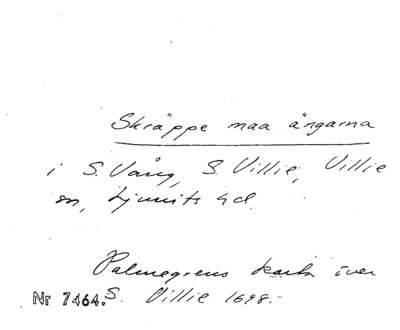 Skräppe maa ängarna
i S. Vång, S. Villie, Villie
sn, Ljunits hd.
Palmegrens karta över
Nr 7464. S. Villie 1698.-